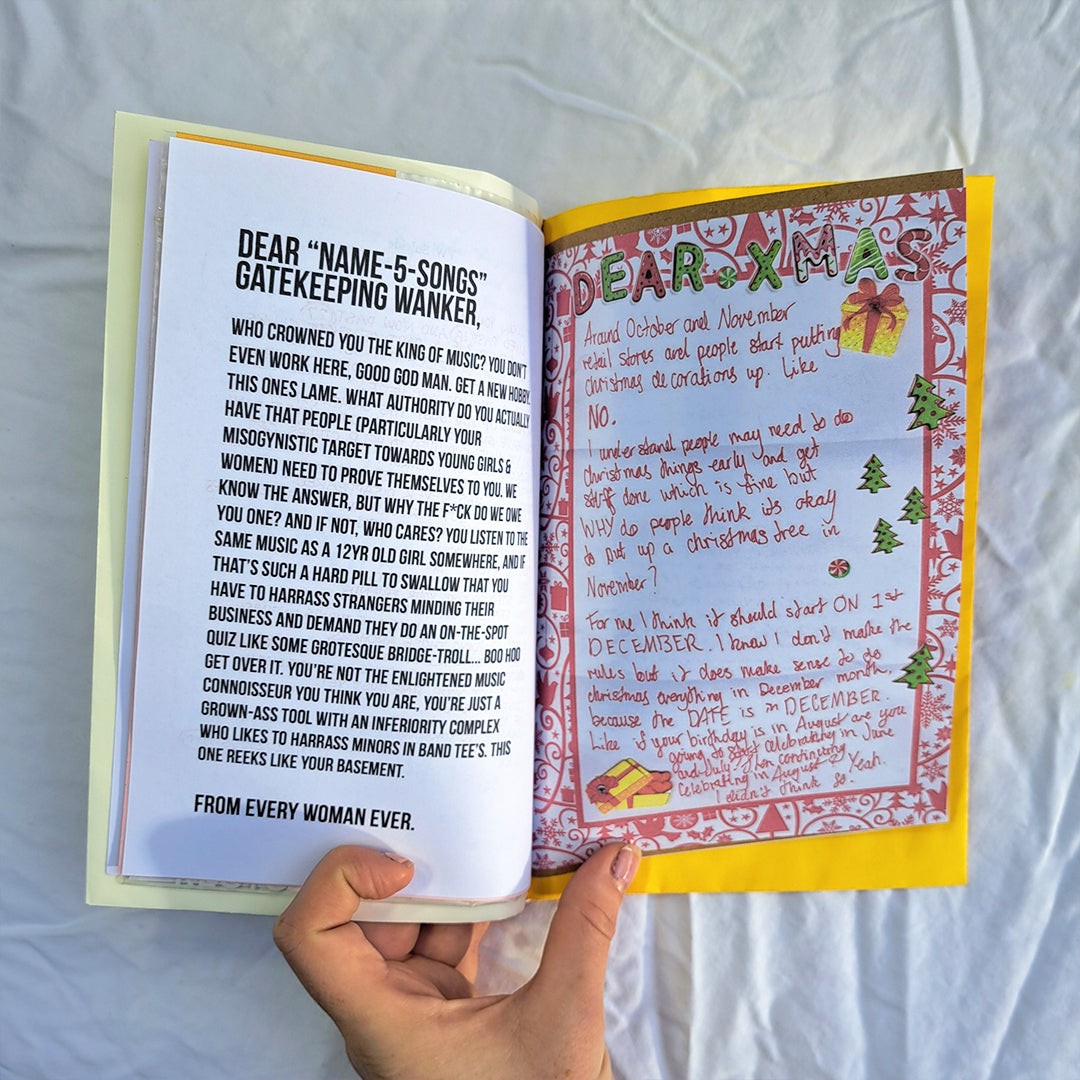 DEAR “NAME-5-SONGS”
GATEKEEPING WANKER,
WHO CROWNED YOU THE KING OF MUSIC? YOU DON'T
EVEN WORK HERE, GOOD GOD MAN. GET A NEW HOBBY,
THIS ONES LAME. WHAT AUTHORITY DO YOU ACTUALLY
HAVE THAT PEOPLE (PARTICULARLY YOUR
MISOGYNISTIC TARGET TOWARDS YOUNG GIRLS &
WOMEN) NEED TO PROVE THEMSELVES TO YOU. WE
KNOW THE ANSWER, BUT WHY THE F*CK DO WE OWE
YOU ONE? AND IF NOT, WHO CARES? YOU LISTEN TO THE
SAME MUSIC AS A 12YR OLD GIRL SOMEWHERE, AND IF
THAT'S SUCH A HARD PILL TO SWALLOW THAT YOU
HAVE TO HARRASS STRANGERS MINDING THEIR
BUSINESS AND DEMAND THEY DO AN ON-THE-SPOT
QUIZ LIKE SOME GROTESQUE BRIDGE-TROLL... BOO HOO
GET OVER IT. YOU'RE NOT THE ENLIGHTENED MUSIC
CONNOISSEUR YOU THINK YOU ARE, YOU'RE JUST A
GROWN-ASS TOOL WITH AN INFERIORITY COMPLEX
WHO LIKES TO HARRASS MINORS IN BAND TEE'S. THIS
ONE REEKS LIKE YOUR BASEMENT.
FROM EVERY WOMAN EVER.
DEAR XMAS
Around October and November
retail stores and people start putting
christmas decorations up. Like
NO.
I understand people may need to do
christmas things early and get
stuff done which is fine but
WHY do people think its okay
to put up a christmas tree in
November?
For me I think it should start ON 1st
DECEMBER. I know I don't make the
rules but it does make sense to do
christmas everything in December month,
because the DATE is in DECEMBER.
Like if your birthday is in August are you
going to start celebrating in June
and July? Then continuing
celebrating in August? Yeah.
I didn't think so.